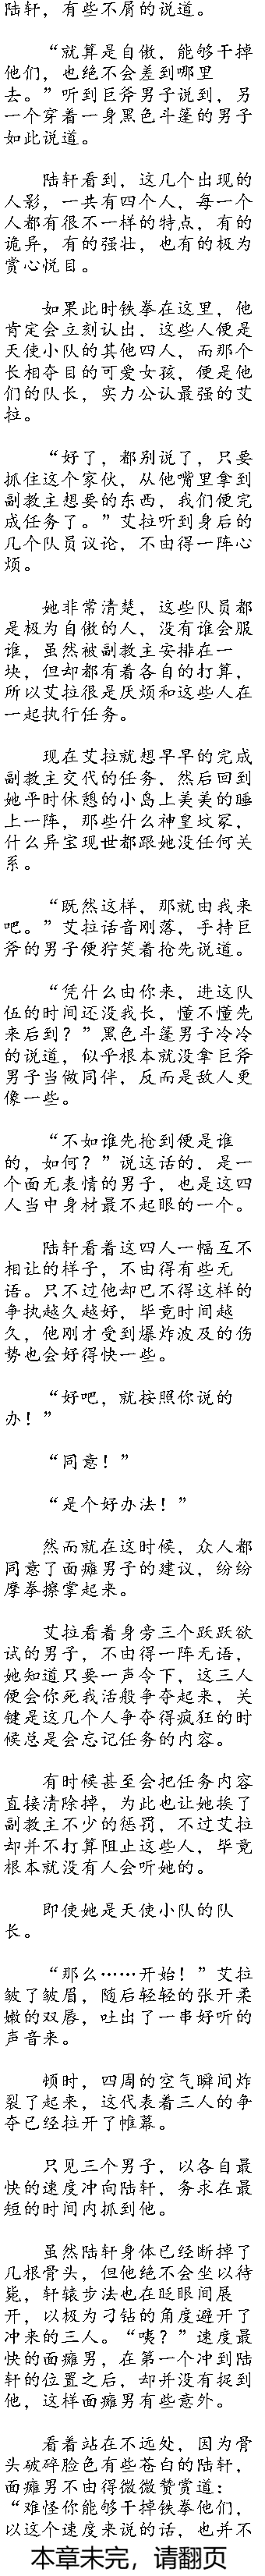 陆轩，有些不屑的说道。
“就算是自傲，能够干掉
他们，也绝不会差到哪里
去。”听到巨斧男子说到，另
一个穿着一身黑色斗篷的男子
如此说道。
陆轩看到，这几个出现的
人影，一共有四个人，每一个
人都有很不一样的特点，有的
诡异，有的强壮，也有的极为
赏心悦目。
如果此时铁拳在这里，他
肯定会立刻认出，这些人便是
天使小队的其他四人，而那个
长相夺目的可爱女孩，便是他
们的队长，实力公认最强的艾
拉。
“好了，都别说了，只要
抓住这个家伙，从他嘴里拿到
副教主想要的东西，我们便完
成任务了。”艾拉听到身后的
几个队员议论，不由得一阵心
烦。
她非常清楚，这些队员都
是极为自傲的人，没有谁会服
谁，虽然被副教主安排在一
块，但却都有着各自的打算，
所以艾拉很是厌烦和这些人在
一起执行任务。
现在艾拉就想早早的完成
副教主交代的任务，然后回到
她平时休憩的小岛上美美的睡
上一阵，那些什么神皇坟冢，
什么异宝现世都跟她没任何关
系。
“既然这样，那就由我来
吧。”艾拉话音刚落，手持巨
斧的男子便狞笑着抢先说道。
“凭什么由你来，进这队
伍的时间还没我长，懂不懂先
来后到？”黑色斗篷男子冷冷
的说道，似乎根本就没拿巨斧
男子当做同伴，反而是敌人更
像一些。
“不如谁先抢到便是谁
的，如何？”说这话的，是一
个面无表情的男子，也是这四
人当中身材最不起眼的一个。
陆轩看着这四人一幅互不
相让的样子，不由得有些无
语。只不过他却巴不得这样的
争执越久越好，毕竟时间越
久，他刚才受到爆炸波及的伤
势也会好得快一些。
“好吧，就按照你说的
办！”
“同意！”
“是个好办法！”
然而就在这时候，众人都
同意了面瘫男子的建议，纷纷
摩拳擦掌起来。
艾拉看着身旁三个跃跃欲
试的男子，不由得一阵无语，
她知道只要一声令下，这三人
便会你死我活般争夺起来，关
键是这几个人争夺得疯狂的时
候总是会忘记任务的内容。
有时候甚至会把任务内容
直接清除掉，为此也让她挨了
副教主不少的惩罚，不过艾拉
却并不打算阻止这些人，毕竟
根本就没有人会听她的。
即使她是天使小队的队
长。
“那么……开始！”艾拉
皱了皱眉，随后轻轻的张开柔
嫩的双唇，吐出了一串好听的
声音来。
顿时，四周的空气瞬间炸
裂了起来，这代表着三人的争
夺已经拉开了帷幕。
只见三个男子，以各自最
快的速度冲向陆轩，务求在最
短的时间内抓到他。
虽然陆轩身体已经断掉了
几根骨头，但他绝不会坐以待
毙，轩辕步法也在眨眼间展
开，以极为刁钻的角度避开了
冲来的三人。“咦？”速度最
快的面瘫男，在第一个冲到陆
轩的位置之后，却并没有捉到
他，这样面瘫男有些意外。
看着站在不远处，因为骨
头破碎脸色有些苍白的陆轩，
面瘫男不由得微微赞赏道：
“难怪你能够干掉铁拳他们，
以这个速度来说的话，也并不
本章未完，请翻页